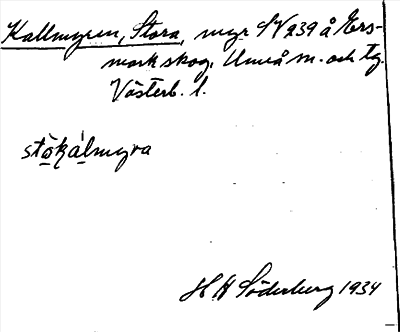 Kallmyren, Stora, myr SV 239 å Ers-
mark skog, Umeå sn. och tg.
Västerb. l.
stòkálmyra
H H Söderberg 1934